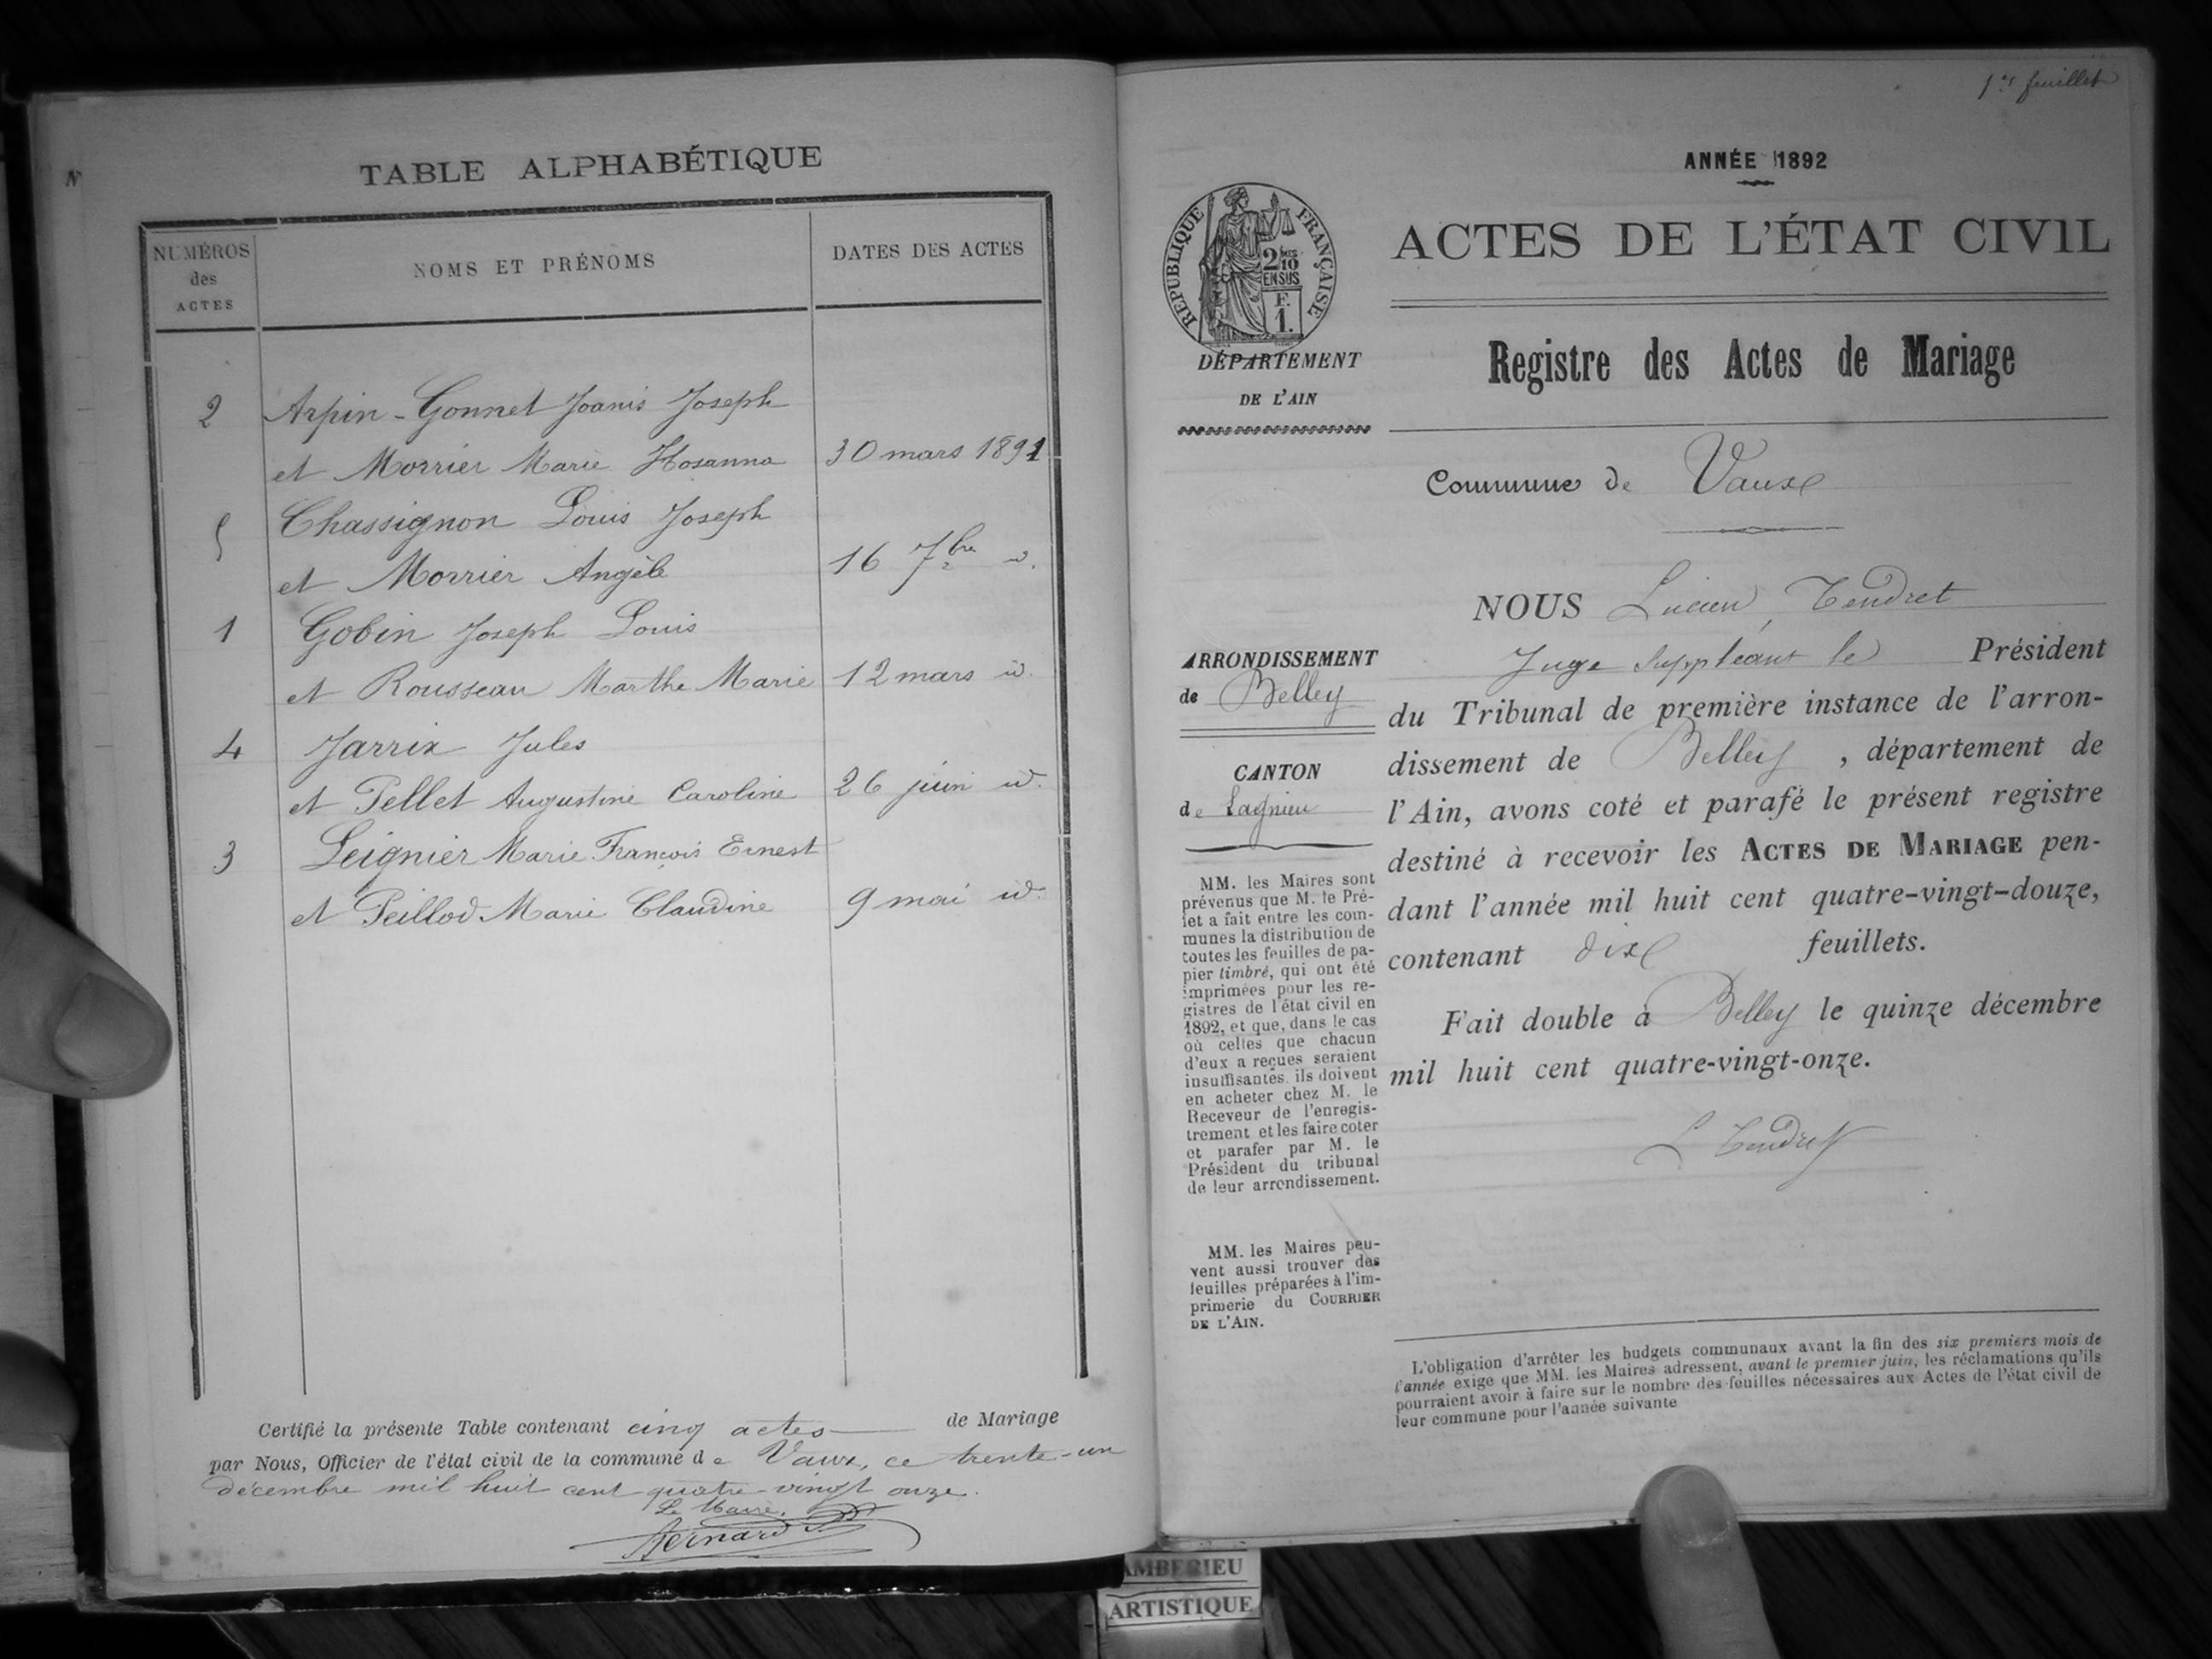 N
TABLE ALPHABÉTIQUE
NUMÉROS
des
ACTES
NOMS ET PRÉNOMS
DATES DES ACTES
2 Arpin-Gonnet Joanis Joseph
et Morrier Marie Hosanna 30 mars 1891
5 Chassignon Louis Joseph
et Morrier Angèle 16 7bre id.
1 Gobin Joseph Louis
et Rousseau Marthe Marie 12 mars id.
4 Jarrix Jules
et Pellet Augustine Caroline 26 juin id.
3 Leignier Marie François Ernest
et Peillod Marie Claudine 9 mai id.
Certifié la présente Table contenant cinq actes de Mariage
par Nous, Officier de l'état civil de la commune de Vaux, ce trente-un
décembre mil huit cent quatre vingt onze.
Le Maire,
Bernard
1er feuillet
ANNÉE 1892
RÉPUBLIQUE FRANÇAISE
2/10
EN SUS
F.
1.
ACTES DE L'ÉTAT CIVIL
DÉPARTEMENT
DE L'AIN
Registre des Actes de Mariage
Commune de Vaux
ARRONDISSEMENT
de Belley
CANTON
de Lagnieu
MM. les Maires sont
prévenus que M. le Pré-
fet a fait entre les com-
munes la distribution de
toutes les feuilles de pa-
pier timbré, qui ont été
imprimées pour les re-
gistres de l'état civil en
1892, et que, dans le cas
où celles que chacun
d'eux a reçues seraient
insuffisantes, ils doivent
en acheter chez M. le
Receveur de l'enregis-
trement et les faire coter
et parafer par M. le
Président du tribunal
de leur arrondissement.
MM. les Maires peu-
vent aussi trouver des
feuilles préparées à l'im-
primerie du COURRIER
DE L'AIN.
NOUS Lucien Tendret
Juge suppléant le Président
du Tribunal de première instance de l'arron-
dissement de Belley, département de
l'Ain, avons coté et parafé le présent registre
destiné à recevoir les ACTES DE MARIAGE pen-
dant l'année mil huit cent quatre-vingt-douze,
contenant dix feuillets.
Fait double à Belley le quinze décembre
mil huit cent quatre-vingt-onze.
L Tendret
L'obligation d'arrêter les budgets communaux avant la fin des six premiers mois de
l'année exige que MM. les Maires adressent, avant le premier juin, les réclamations qu'ils
pourraient avoir à faire sur le nombre des feuilles nécessaires aux Actes de l'état civil de
leur commune pour l'année suivante
AMBERIEU
ARTISTIQUE